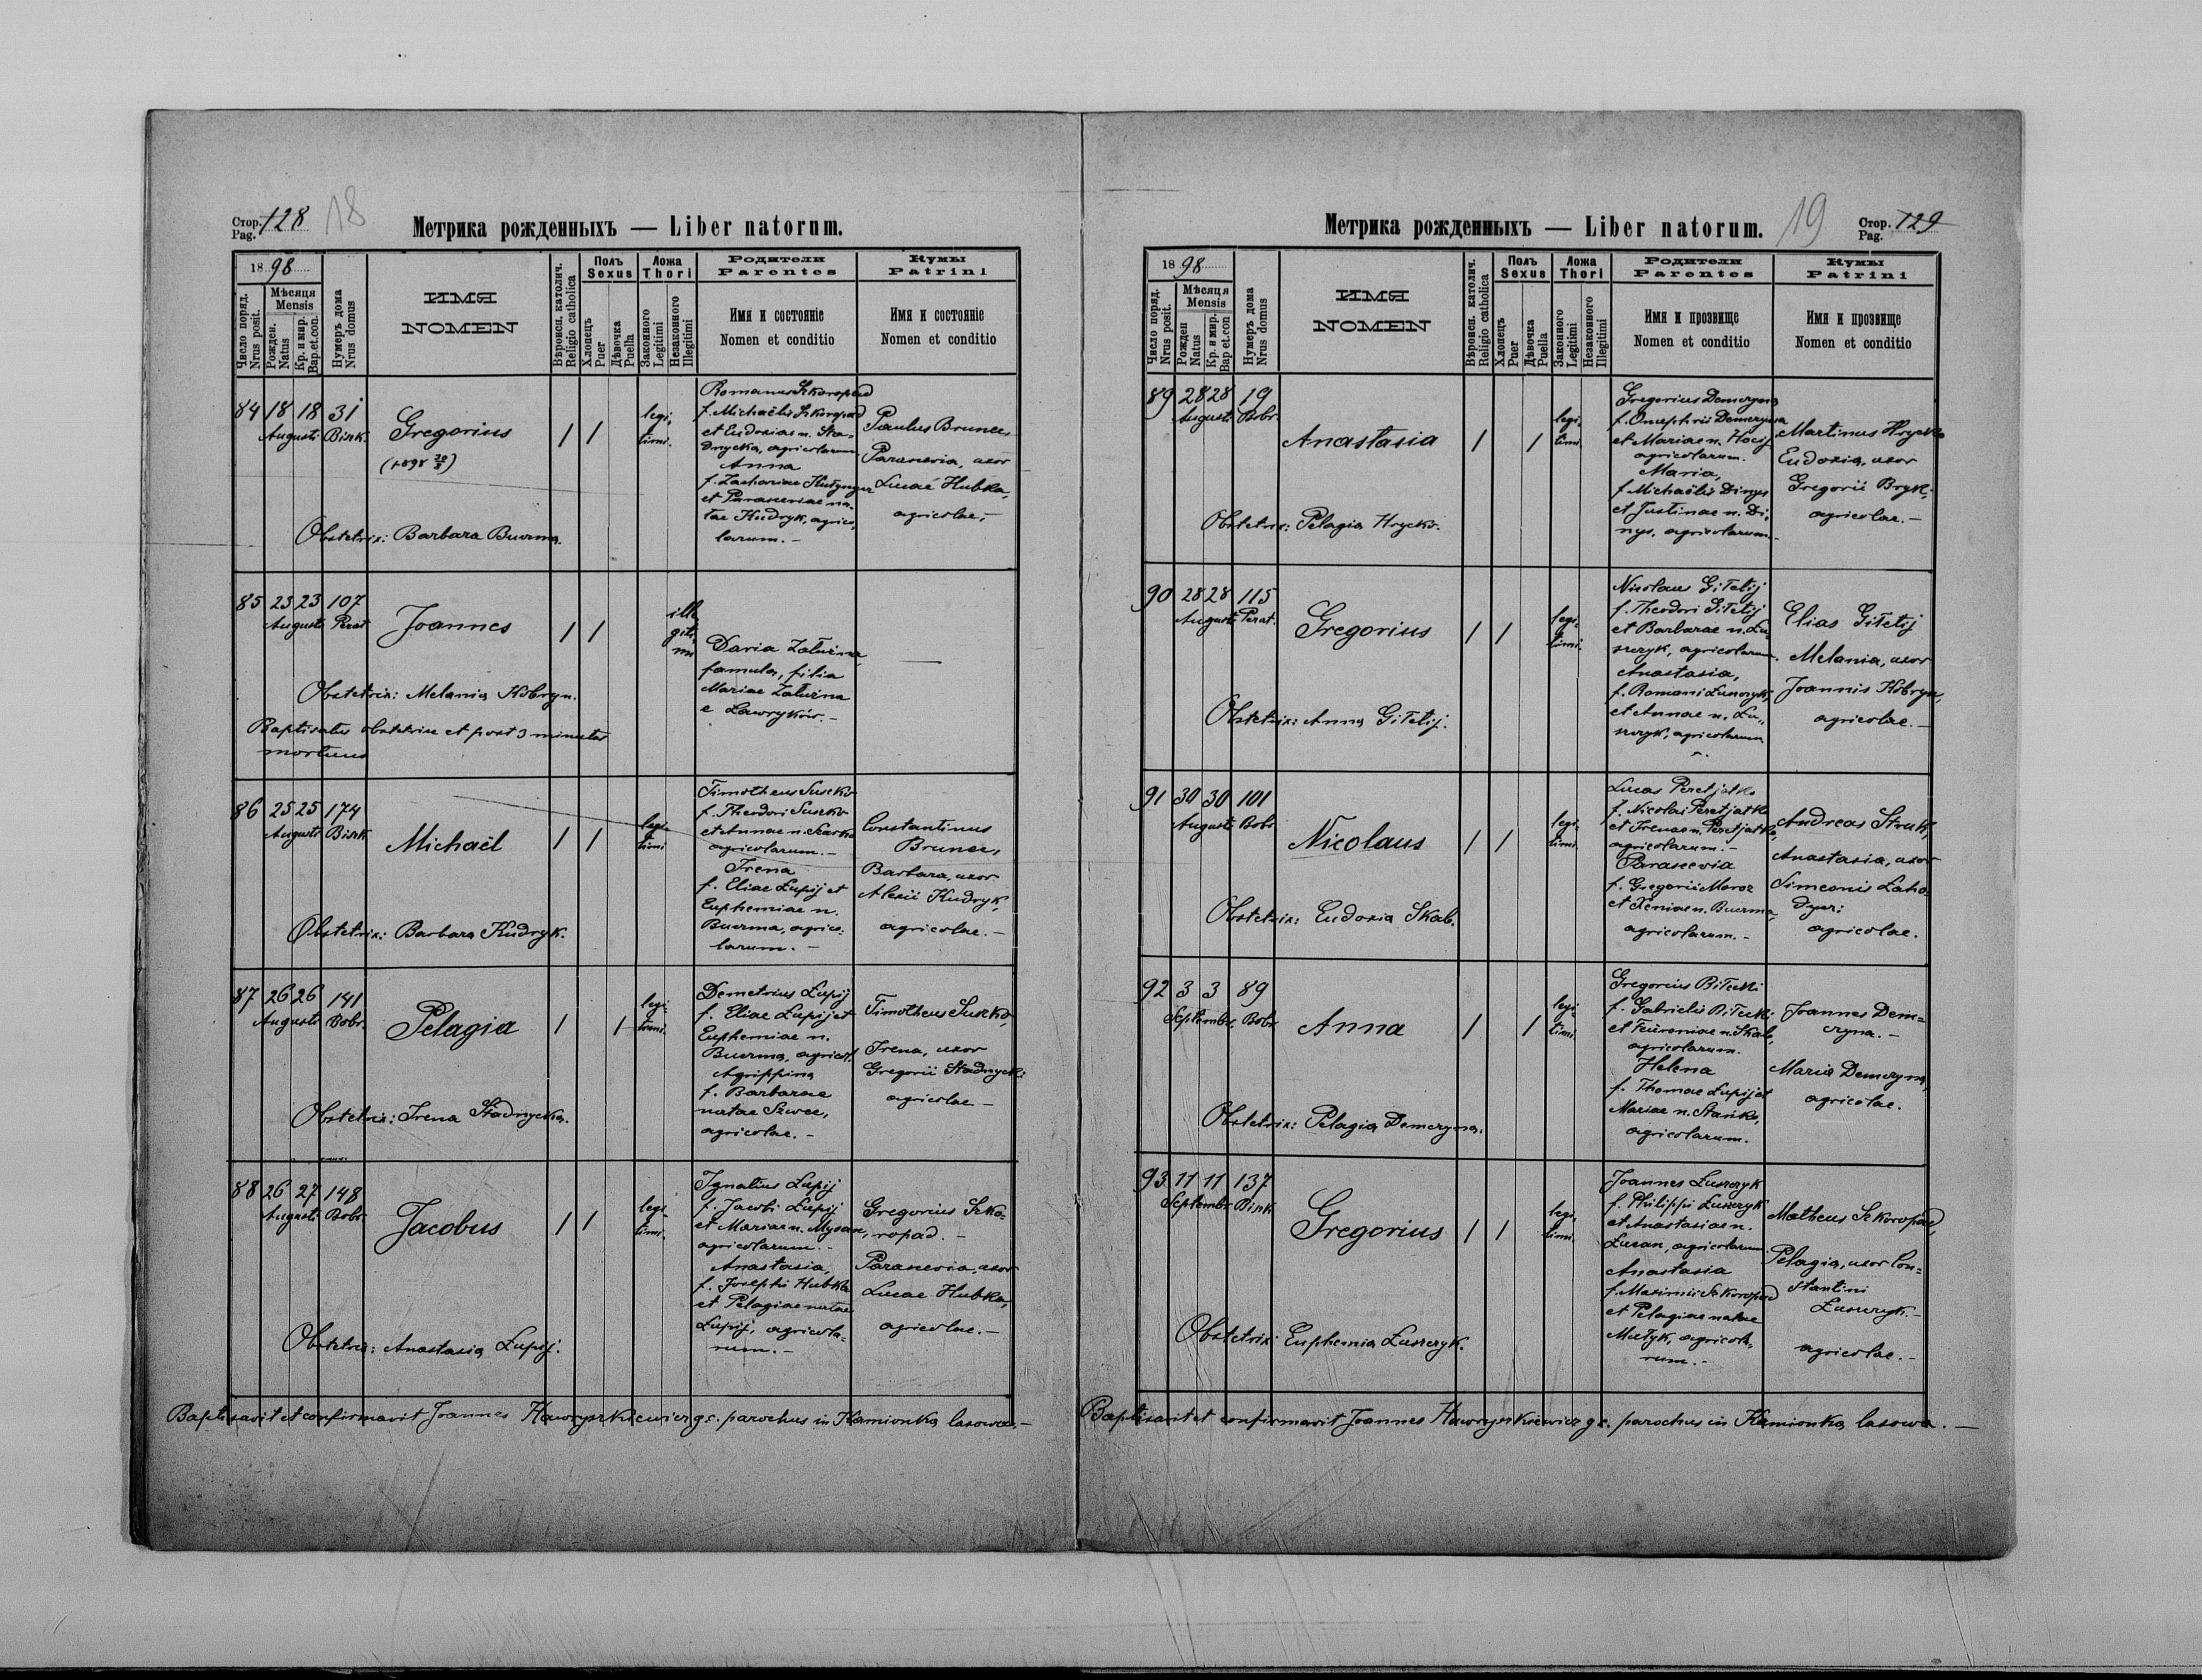 Стор. Pag. 128 18
Метрика рожденныхъ — Liber natorum.
1898
Число поряд. Nrus posit.
Мѣсяця Mensis
Рожден. Natus
Кр. и мир. Bap. et. con.
Нумеръ дома Nrus domus
ИМЯ
NOMEN
Вѣроисп. католич. Religio catholica
Полъ Sexus
Хлопецъ Puer
Дѣвочка Puella
Ложа Thori
Законного Legitimi
Незаконного Illegitimi
Родители
Parentes
Имя и состояніе
Nomen et conditio
Кумы
Patrini
Имя и состояніе
Nomen et conditio
84 18 18 31
Augusti Bisk.
Gregorius
/ /
legi-
timi.
Romanus Szkoropad
f. Michaëlis Szkoropad
et Eudoxiae n. Sta-
dnycka, agricolarum
Anna
f. Zachariae
et Parasceviae na-
tae Kudryk, agrico-
larum. -
Paulus Brunec
Parascevia, uxor
Lucae Hubka,
agricolae, -
Obstetrix: Barbara Buerma.
85 23 23 107
Augusti Perat
Joannes
/ /
ille
giti-
mi
Daria Zaluzna
famula, filia
Mariae Zaluzna
e Lawryków. -
Obstetrix: Melania Kobryn.
Baptisatus obstetrice et post 3 minutas
mortuus
86 25 25 174
Augusti Bisk
Michaël
/ /
legi-
timi
Timotheus Suszko
f. Theodori Suszko
et Annae n. Szarko
agricolarum. -
Irena
f. Eliae Łupij et
Euphemiae n.
Buerma, agrico-
larum. -
Constantinus
Brunec,
Barbara, uxor
Alexii Kudryk,
agricolae. -
Obstetrix: Barbara Kudryk.
87 26 26 141
Augusti Bobr.
Pelagia
/ /
legi-
timi.
Demetrius Łupij
f. Eliae Łupij et
Euphemiae n.
Buerma, agricol.
Agrippina
f. Barbarae
natae Szwec,
agricolae. -
Timotheus Suszko,
Irena, uxor
Gregorii Stadnycki
agricolae -
Obstetrix: Irena Stadnycka.
88 26 27 148
Augusti Bobr.
Jacobus
/ /
legi-
timi.
Ignatius Łupij
f. Jacobi Łupij
et Mariae n. Mysan,
agricolarum. -
Anastasia,
f. Josephi Hubka
et Pelagiae natae
Łupij, agricola-
rum. -
Gregorius Szko-
ropad. -
Parascevia, uxor
Lucae Hubka,
agricolae. -
Obstetrix: Anastasia Łupij.
Baptisavit et confirmavit Joannes Hawryszkiewicz g. c. parochus in Kamionka lasowa. -
Метрика рожденныхъ — Liber natorum.
19 Стор. Pag. 129
1898
Число поряд. Nrus posit.
Мѣсяця Mensis
Рожден Natus
Кр. и мир. Bap et. con
Нумеръ дома Nrus domus
ИМЯ
NOMEN
Вѣроисп. католич. Religio catholica
Полъ Sexus
Хлопецъ Puer
Дѣвочка Puella
Ложа Thori
Законного Legitimi
Незаконного Illegitimi
Родители
Parentes
Имя и прозвище
Nomen et conditio
Кумы
Patrini
Имя и прозвище
Nomen et conditio
89 28 28 19
Augusti Bobr.
Anastasia
/ /
legi-
timi.
Gregorius Demczyna
f. Onuphrii Demczyna
et Mariae n.
agricolarum.
Maria,
f. Michaëlis Dinys
et Justinae n. Di-
nys, agricolarum. -
Martinus Hrycko
Eudoxia, uxor
Gregorii Bryk,
agricolae. -
Obstetrix: Pelagia Hrycko.
90 28 28 115
Augusti Perat.
Gregorius
/ /
legi-
timi.
Nicolaus Giteltj
f. Theodori Giteltj
et Barbarae n. Łu-
szczyk, agricolarum.
Anastasia,
f. Romani Łuszczyk,
et Annae n. Łu-
szczyk, agricolarum
Elias Giteltj
Melania, uxor
Joannis Kobryn,
agricolae. -
Obstetrix: Anna Giteltj.
91 30 30 101
Augusti Bobr
Nicolaus
/ /
legi-
timi.
Lucas Peretjatko
f. Nicolai Peretjatko
et Irenae n. Peretjatko,
agricolarum. -
Parascevia
f. Gregorii Moroz
et Xeniae n. Buerma,
agricolarum. -
Andreas Struk,
Anastasia, uxor
Simeonis Zaho-
agricolae.
Obstetrix: Eudoxia Skab.
92 3 3 89
Septembr. Bobr
Anna
/ /
legi-
timi.
Gregorius Bilecki
f. Gabrielis Bilecki
et Feuroniae n. Skab,
agricolarum.
Helena
f. Thomae Łupij et
Mariae n. Stańko,
agricolarum.
Joannes Dem-
czyna. -
Maria Demczyna,
agricolae.
Obstetrix: Pelagia Demczyna.
93 11 11 137
Septembr. Bisk
Gregorius
/ /
legi-
timi.
Joannes Łuszczyk
f. Philippi Łuszczyk
et Anastasiae n.
Łucan, agricolarum.
Anastasia
f. Maximii Szkoropad
et Pelagiae natae
agricola-
rum. -
Matheus Szkoropad,
Pelagia, uxor Con-
stantini
Łuszczyk. -
agricolae. -
Obstetrix: Euphemia Łuszczyk.
Baptisavit et confirmavit Joannes Hawryszkiewicz g. c. parochus in Kamionka lasowa. -